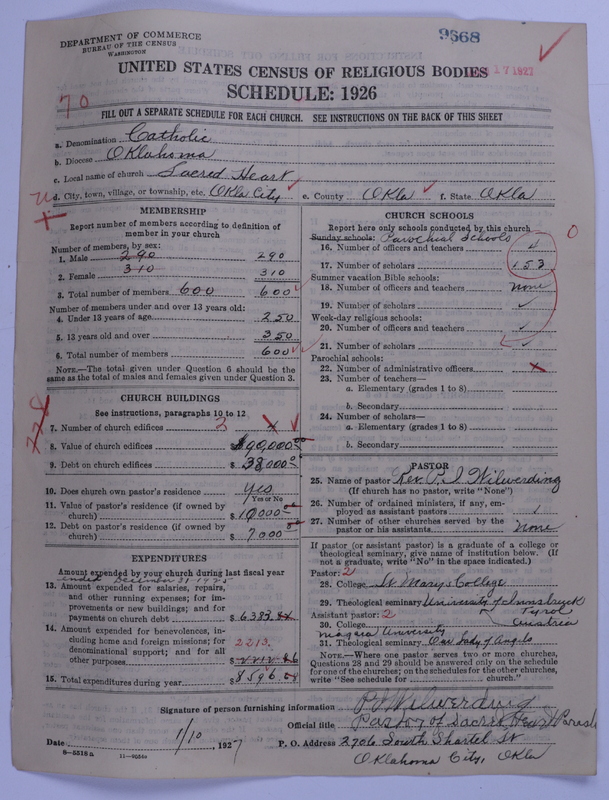 DEPARTMENT OF COMMERCE
BUREAU OF THE CENSUS
WASHINGTON
9668
17 1927
UNITED STATES CENSUS OF RELIGIOUS BODIES
SCHEDULE: 1926
70
FILL OUT A SEPARATE SCHEDULE FOR EACH CHURCH. SEE INSTRUCTIONS ON THE BACK OF THIS SHEET
a. Denomination Catholic
b. Diocese Oklahoma
c. Local name of church Sacred Heart
d. City, town, village, or township, etc. Okla City e. County Okla f. State Okla
MEMBERSHIP
Report number of members according to definition of
member in your church
Number of members, by sex:
1. Male 290 290
2. Female 310 310
3. Total number of members 600 600
Number of members under and over 13 years old:
4. Under 13 years of age 250
5. 13 years old and over 350
6. Total number of members 600
NOTE.—The total given under Question 6 should be the
same as the total of males and females given under Question 3.
CHURCH BUILDINGS
See instructions, paragraphs 10 to 12
7. Number of church edifices
8. Value of church edifices $
9. Debt on church edifices $
10. Does church own pastor's residence yes
Yes or No
11. Value of pastor's residence (if owned by
church) $ 10000
12. Debt on pastor's residence (if owned by
church) $ 7000
EXPENDITURES
Amount expended by your church during last fiscal year
ended December 31-1925
13. Amount expended for salaries, repairs,
and other running expenses; for im-
provements or new buildings; and for
payments on church debt $ 6383
14. Amount expended for benevolences, in-
cluding home and foreign missions; for
denominational support; and for all
other purposes 2213.
15. Total expenditures during year $ 8596
CHURCH SCHOOLS
Report here only schools conducted by this church
Sunday schools: Parochial Schools
16. Number of officers and teachers 4
17. Number of scholars 153
Summer vacation Bible schools:
18. Number of officers and teachers none
19. Number of scholars
Week-day religious schools:
20. Number of officers and teachers
21. Number of scholars
Parochial schools:
22. Number of administrative officers
23. Number of teachers—
a. Elementary (grades 1 to 8)
b. Secondary
24. Number of scholars—
a. Elementary (grades 1 to 8)
b. Secondary
PASTOR
25. Name of pastor Rev. P. J. Wilwerding
(If church has no pastor, write "None")
26. Number of ordained ministers, if any, em-
ployed as assistant pastors 1
27. Number of other churches served by the
pastor or his assistants none
If pastor (or assistant pastor) is a graduate of a college or
theological seminary, give name of institution below. (If
not a graduate, write "No" in the space indicated.)
Pastor: 2
28. College St Marys College
29. Theological seminary University of Innsbruck
Tyrol
Austria
Assistant pastor: 2
30. College
Niagara University
31. Theological seminary Our Lady of Angels
NOTE.—Where one pastor serves two or more churches,
Questions 28 and 29 should be answered only on the schedule
for one of the churches; on the schedules for the other churches,
write "See schedule for church."
Signature of person furnishing information P J Wilwerding
Official title Pastor of Sacred Heart Parish
Date 1/10, 1927 P. O. Address 2706 South Shartel St
Oklahoma City, Okla
8—5518a